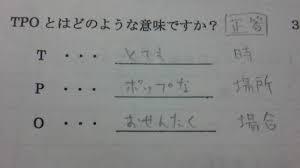 TPO とはどのような意味ですか? 正答 3
T ・・・ とても 時
P ・・・ ポップな 場所
O ・・・ おせんたく 場合